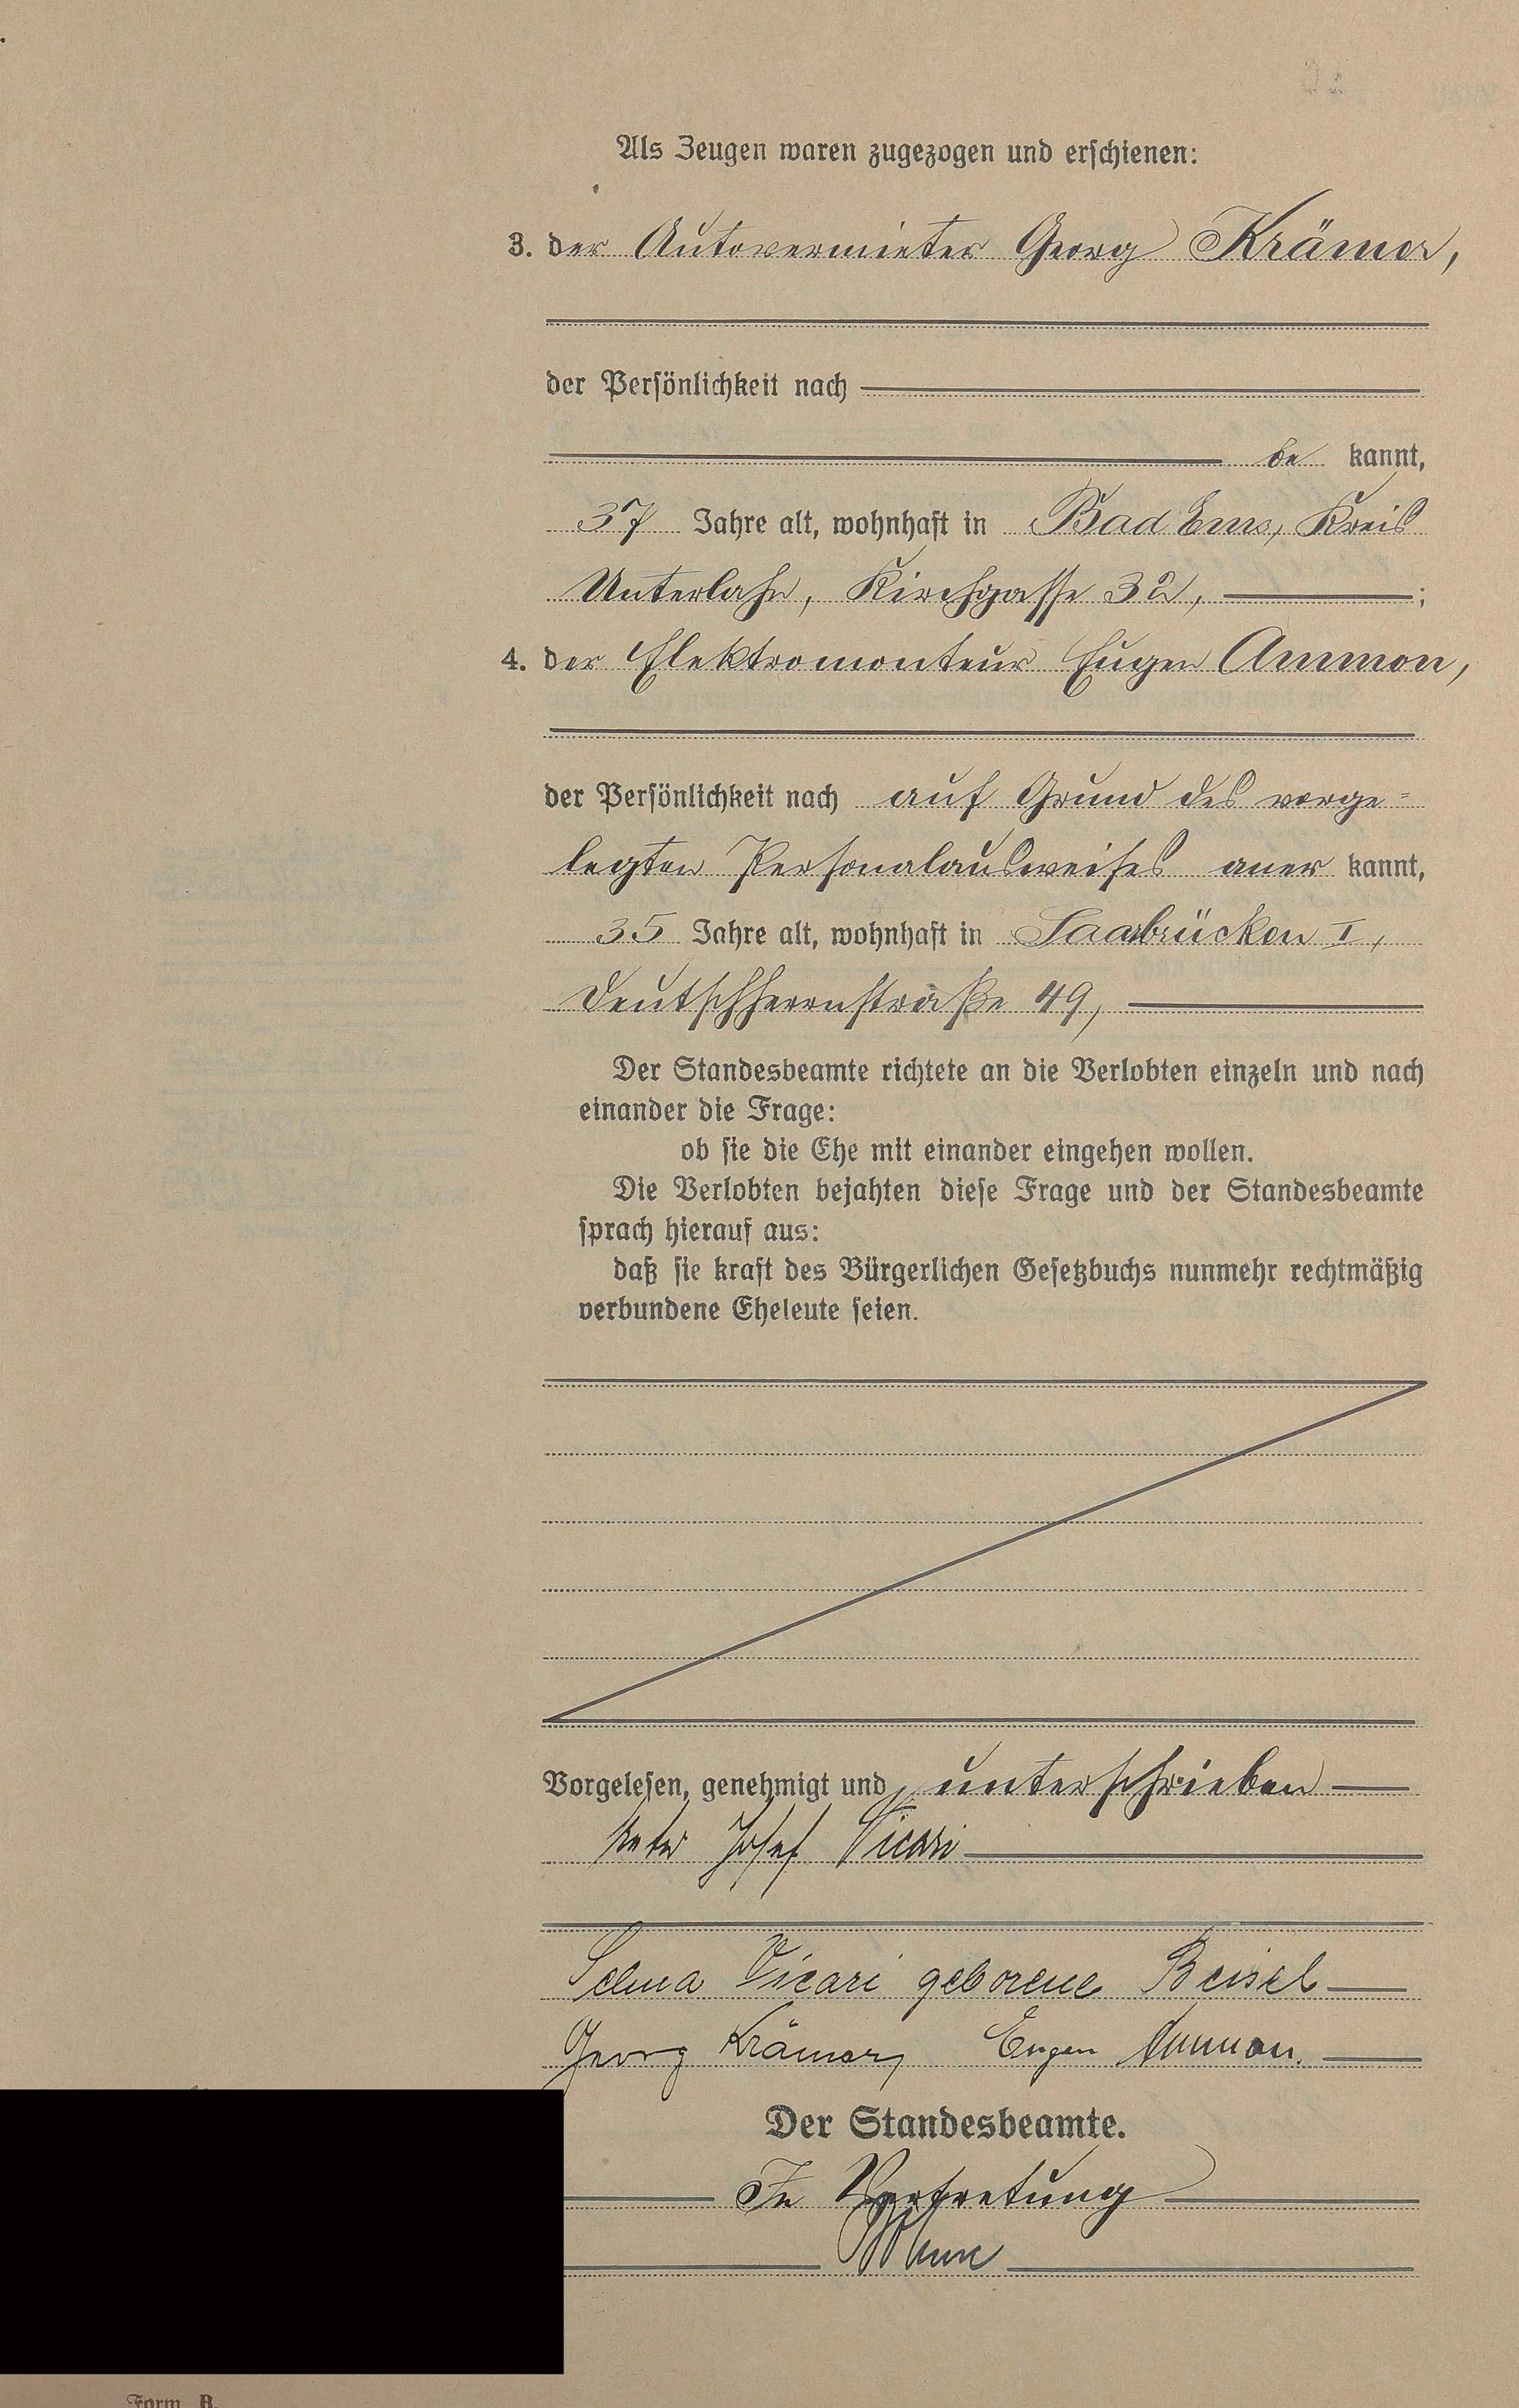 Als Zeugen waren zugezogen und erschienen:
3. der Autovermieter Georg Krämer,
der Persönlichkeit nach
be kannt,
37 Jahre alt, wohnhaft in Bad Ems, Kreis
Unterlahn, Kirchgasse 32, ;
4. der Elektromonteur Eugen Ammon,
der Persönlichkeit nach auf Grund des vorge=
legten Personalausweises aner kannt,
35 Jahre alt, wohnhaft in Saarbrücken I,
Deutschherrnstraße 49,
Der Standesbeamte richtete an die Verlobten einzeln und nach
einander die Frage:
ob sie die Ehe mit einander eingehen wollen.
Die Verlobten bejahten diese Frage und der Standesbeamte
sprach hierauf aus:
daß sie kraft des Bürgerlichen Gesetzbuchs nunmehr rechtmäßig
verbundene Eheleute seien.
Vorgelesen, genehmigt und unterschrieben
Peter Josef Vicari
Selma Vicari geborene Beisel
Georg Krämer, Eugen Ammon.
Der Standesbeamte.
In Vertretung
Form B.